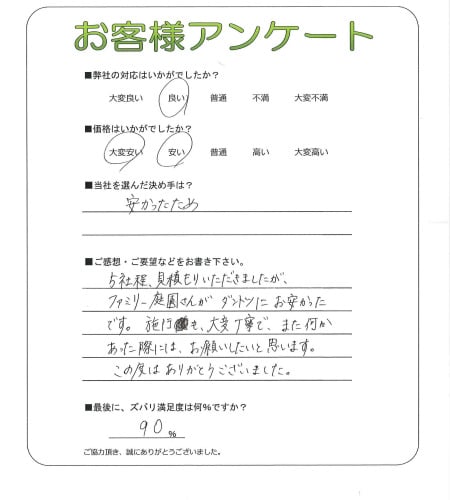 お客様アンケート
■弊社の対応はいかがでしたか?
大変良い 良い 普通 不満 大変不満
■価格はいかがでしたか?
大変安い 安い 普通 高い 大変高い
■当社を選んだ決め手は?
安かったため
■ご感想・ご要望などをお書き下さい。
5社程、見積もりいただきましたが、
ファミリー庭園さんが ダントツにお安かった
です。施行も、大変丁寧で、また何か
あった際には、お願いしたいと思います。
この度は ありがとうございました。
■最後に、ズバリ満足度は何%ですか?
90 %
ご協力頂き、誠にありがとうございました。